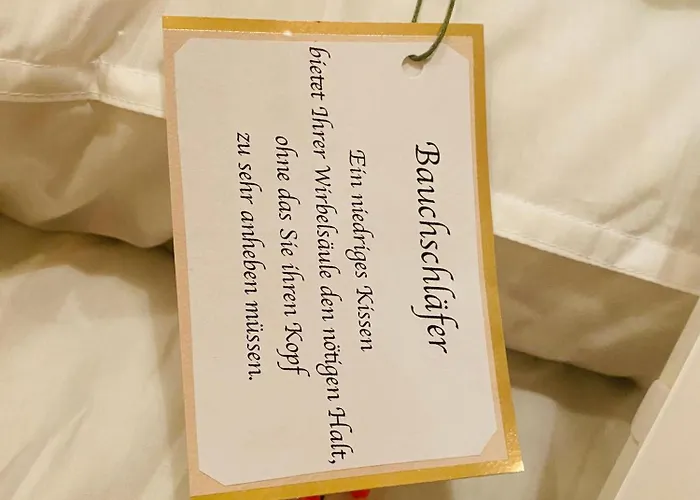 Bauchschläfer
Ein niedriges Kissen
bietet Ihrer Wirbelsäule den nötigen Halt,
ohne das Sie ihren Kopf
zu sehr anheben müssen.